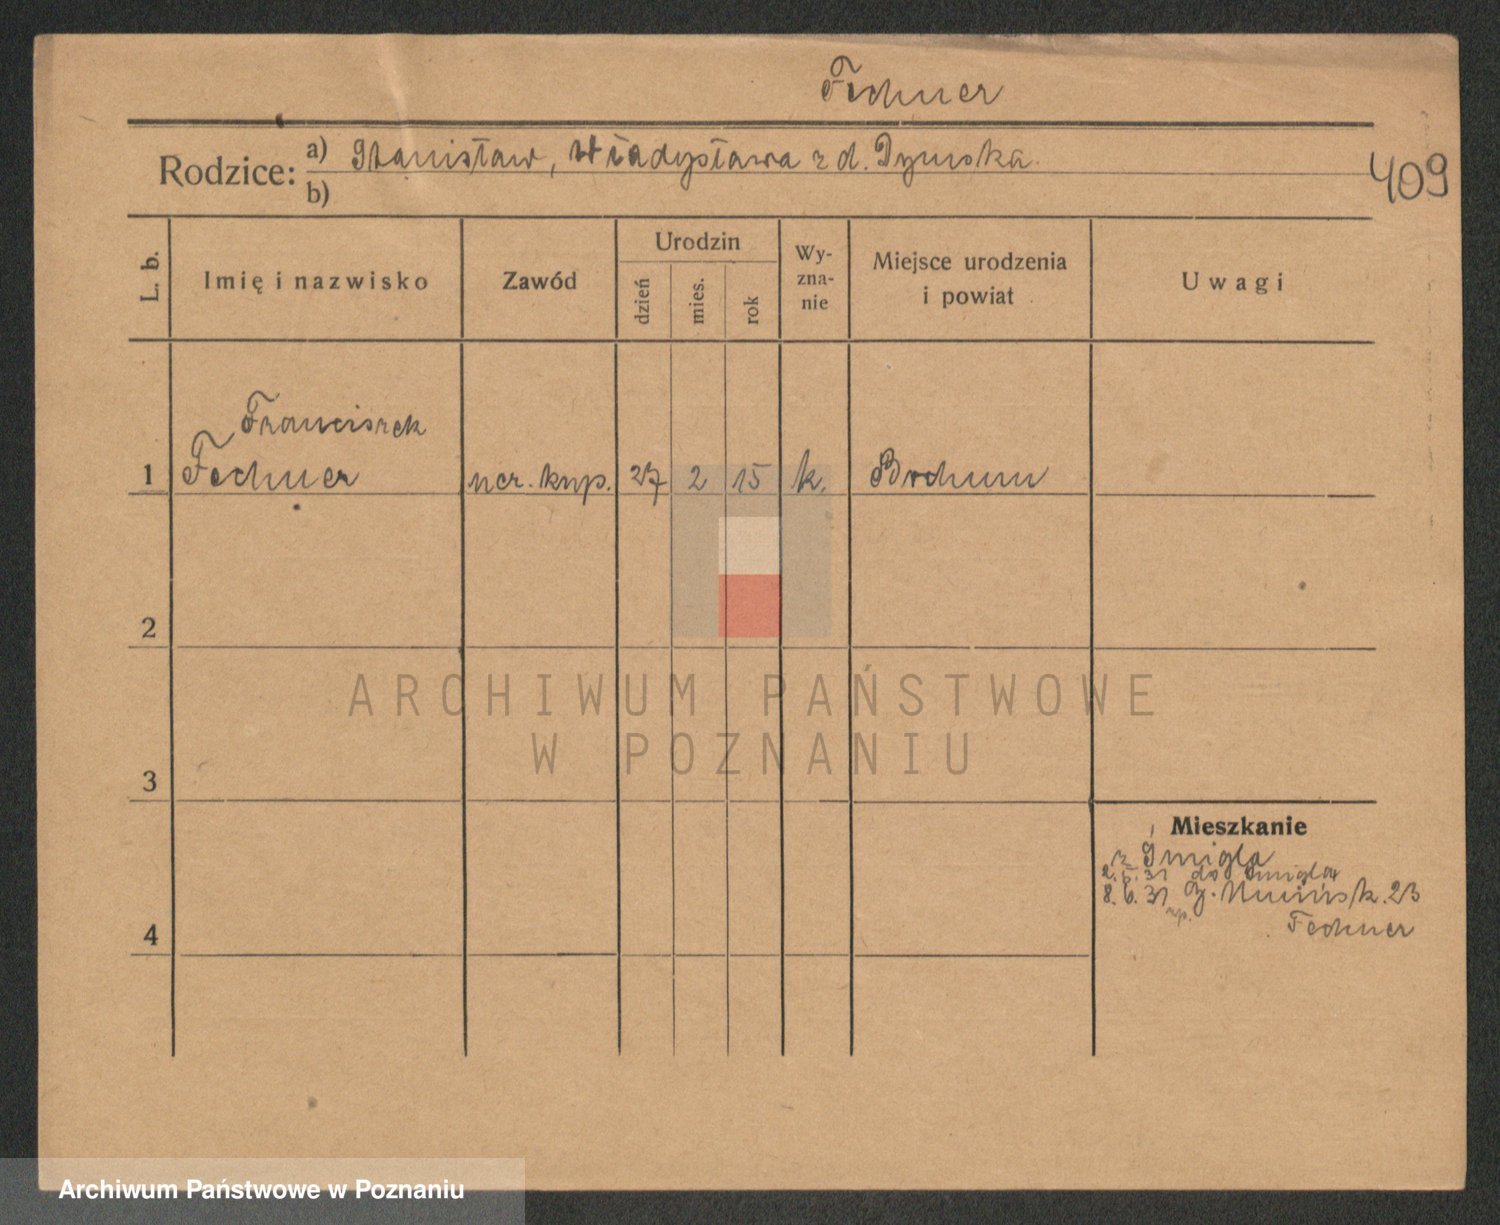 Fechner
Rodzice: a) Stanisław, Władysława z d. Dymska
b)
409
L. b.
Imię i nazwisko
Zawód
Urodzin
dzień
mies.
rok
Wy-
zna-
nie
Miejsce urodzenia
i powiat
Uwagi
Franciszek
1 Fechner ucz. kup. 27 2 15 k. Bochum
2
ARCHIWUM PAŃSTWOWE
W POZNANIU
3
Mieszkanie
z Śmigla
2. 5. 31 do Śmigla
8. 6. 31 23
Fechner
4
Archiwum Państwowe w Poznaniu